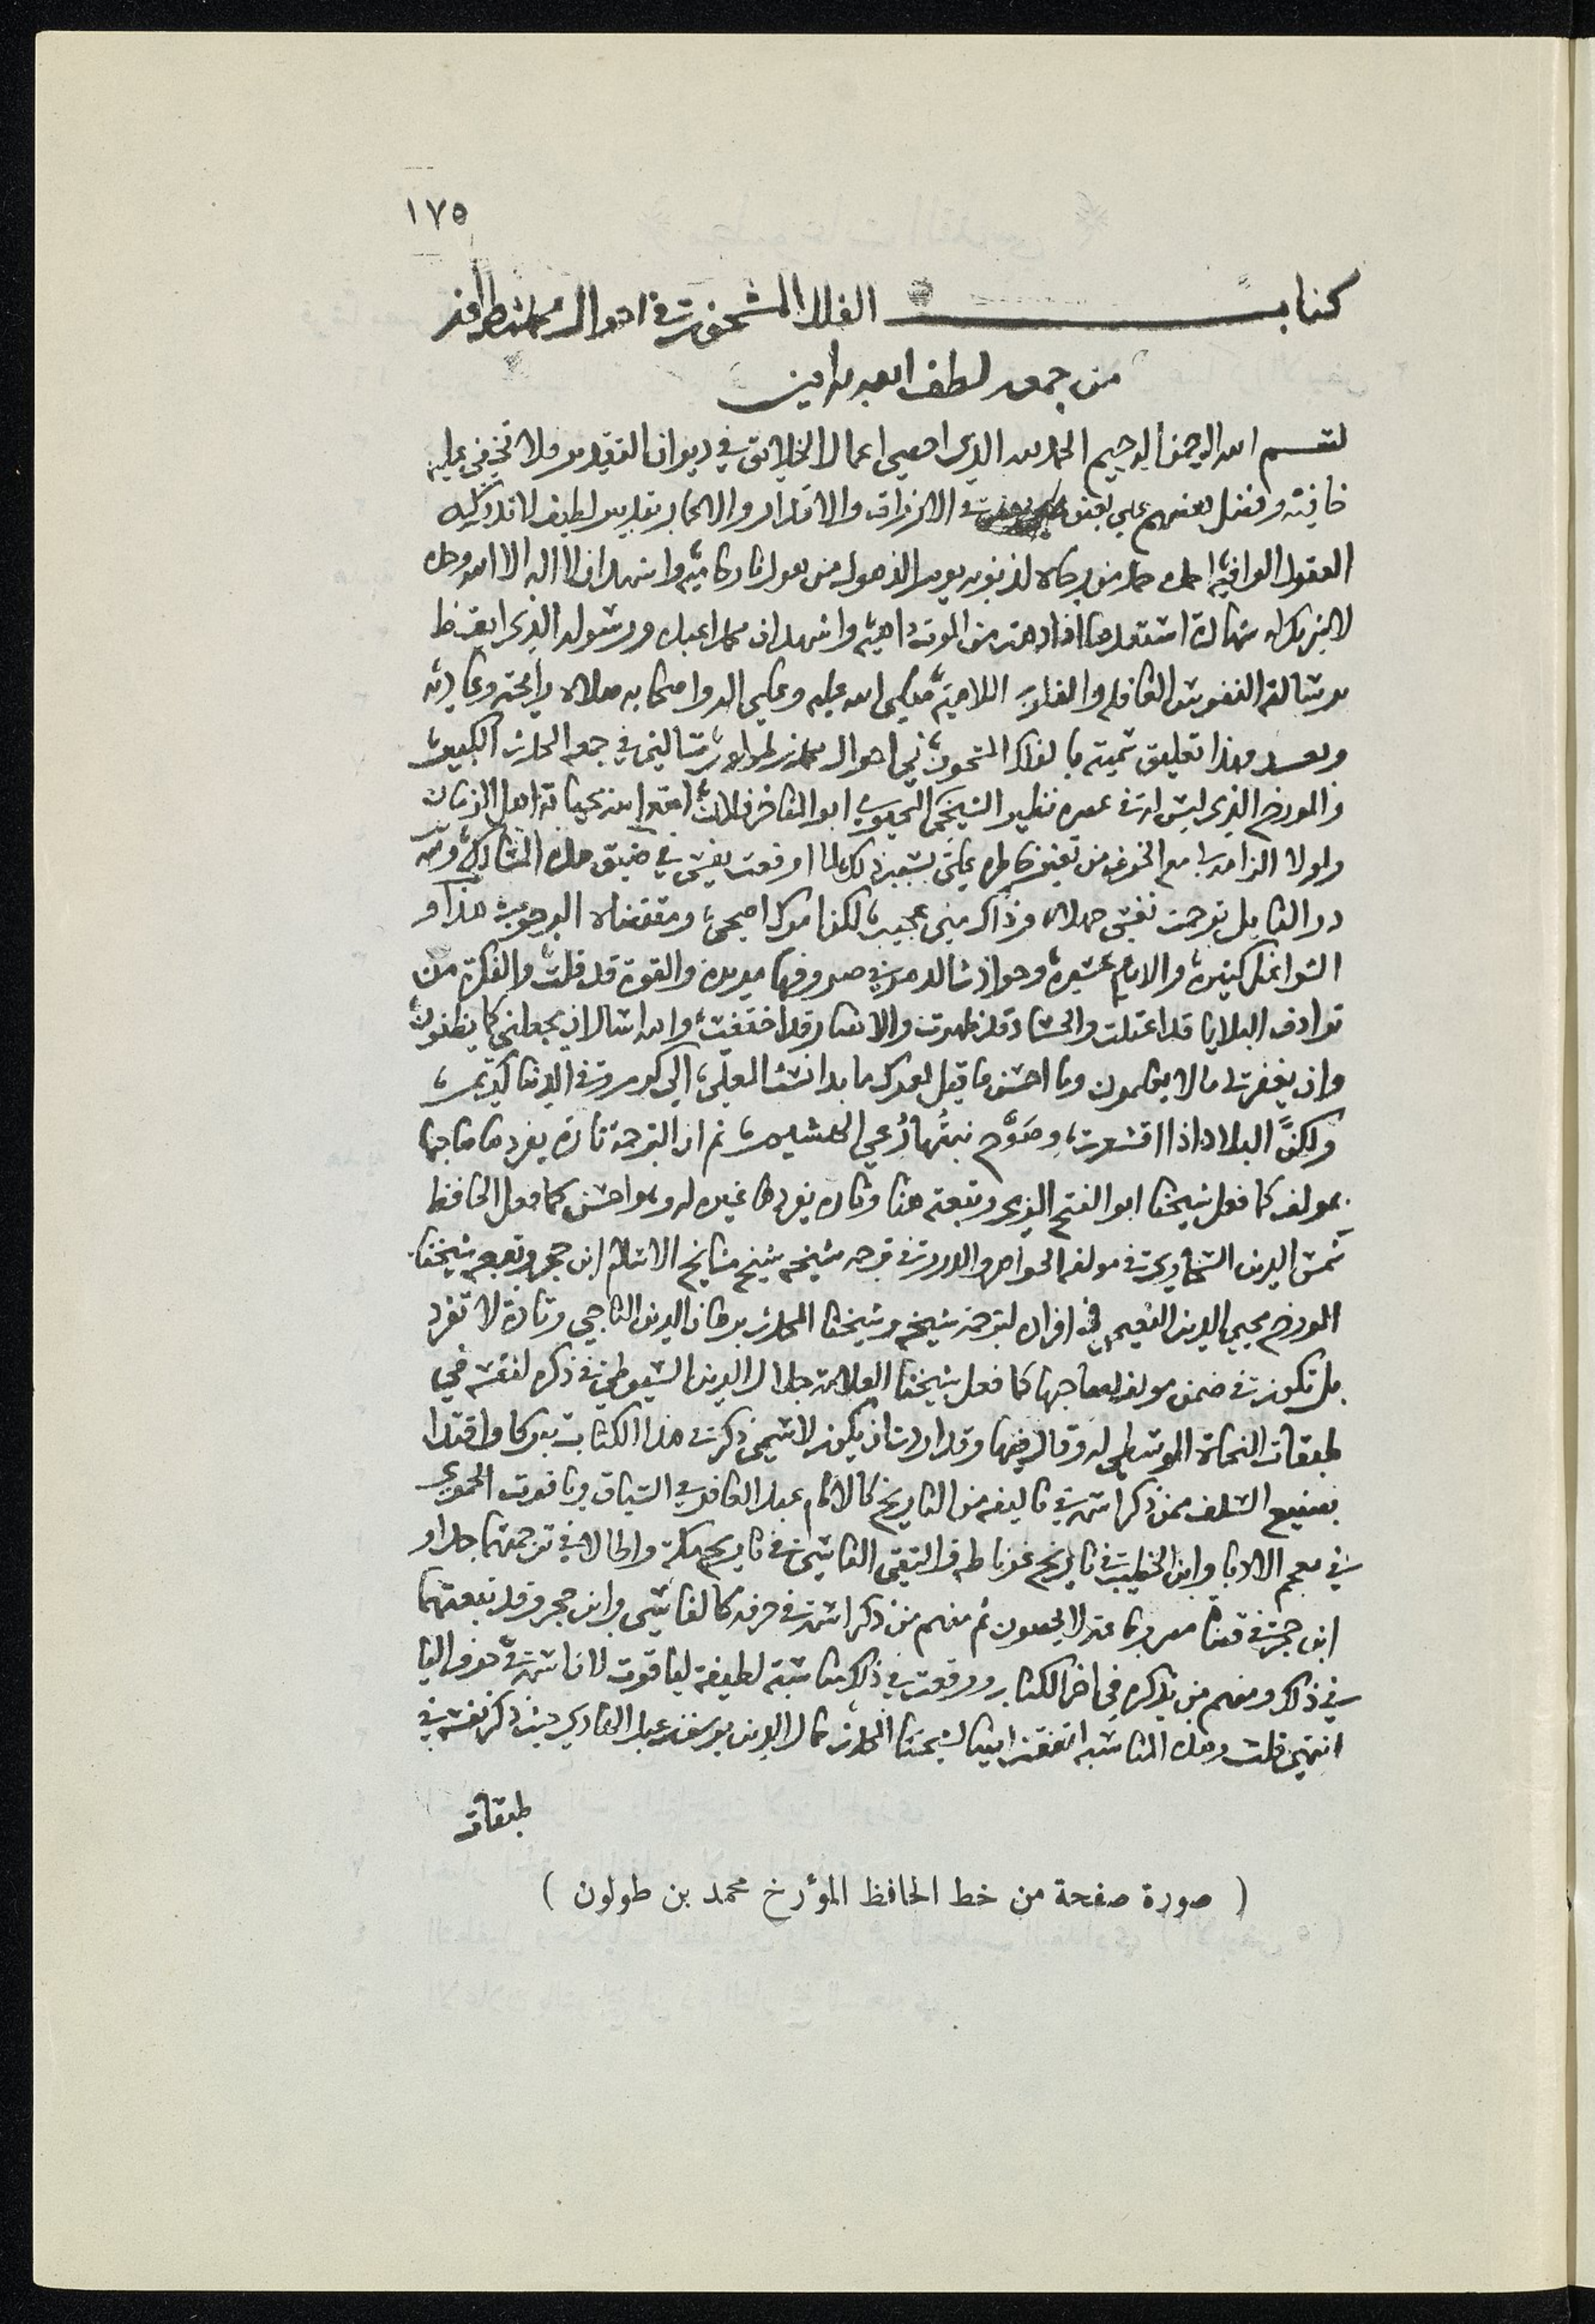 ١٧٥
كتاب الفلك المشحون في احوال محمد بن طولون
من جمعه لطف الله به امين
بسم الله الرحمن الرحيم الحمد لله الذي احصى اعمال الخلايق في ديوان التقدير فلا تخفى عليه
خافية وفضل بعضهم على بعض في الارزاق والاقدار والاعمار بتدبير لطيف لا تدركه
العقول الوافية احمده حمد من لذنوبه واشهد ان لا اله الا الله وحده
لا شريك له شهادة من الموت داهية واشهد ان محمدا عبده ورسوله الذي ايقظ
برسالته النفوس الغافلة والقلوب اللاهية صلى الله عليه وعلى اله واصحابه صلاة رائحة وغادية
وبعد فهذا تعليق سميته بالفلك المشحون في احوال محمد بن طولون سالني في جمعه المحدث الكبير
والمورخ الذي ليس له في عصره نظير الشيخ محيى ابو المفاخر امتع الله بحياته اهل الزمان
ولولا مع الخوف من تغير خاطره علي بسبب ذلك لما اوقعت نفسي في ضيق هذه المسالك ولله
در القايل
الشواغل كثيرة والايام عسيرة وحوادثها في صروفها والقوة قد قلت والفكرة من
ترادف البلايا قد اعتلت والحساد قد ظهرت والانصار قد اختفت والله اسال ان يجعلني كما يظنون
وان يغفر لي ما لا يعلمون وما احسن ما قيل لعمرك ما بدا نسب المعلى الى كرم وفي الدنيا كريم
ولكن البلاد اذا اقشعرت وصوح نبتها رعي الهشيم ثم ان الترجمة تارة يفردها صاحبها
بمولف كما فعل شيخنا ابو الفتح المزي وتبعته هنا وتارة يفردها غيره له وهو احسن كما فعل الحافظ
شمس الدين السخاوي في مولفه الجواهر والدرر في ترجمة شيخه شيخ مشايخ الاسلام ابن حجر وتبعه شيخنا
المورخ محيي الدين النعيمي في افراده لترجمة شيخه وشيخنا المحدث برهان الدين الناجي وتارة لا تفرد
بل تكون في ضمن مولف لصاحبها كما فعل شيخنا العلامة جلال الدين السيوطي في ذكره لنفسه في
طبقات النحاة الوسطى له وقال فيها وقد اردت ان يكون لاسمي ذكر في هذا الكتاب تبركا واقتدا
بصنيع السلف ممن ذكر اسمه في تاليفه من التاريخ كالامام عبد الغافر في السياق وياقوت الحموي
في معجم الادبا وابن الخطيب في تاريخ غرناطة والتقي الفاسي في تاريخ مكة واطالا في ترجمتهما جدا و
ابن حجر في قضاة مصر وجماعة لا يحصون ثم منهم من ذكر اسمه في حرفه كالفاسي وابن حجر وقد تبعتهما
في ذلك ومنهم من يذكره في اخر الكتاب ووقعت في ذلك مناسبة لطيفة لياقوت لان اسمه في حرف اليا
انتهى قلت وهذه المناسبة اتفقت ايضا لشيخنا المحدث جمال الدين يوسف بن عبد الهادي حيث ذكر نفسه في
طبقات
( صورة صفحة من خط الحافظ المؤرخ محمد بن طولون )